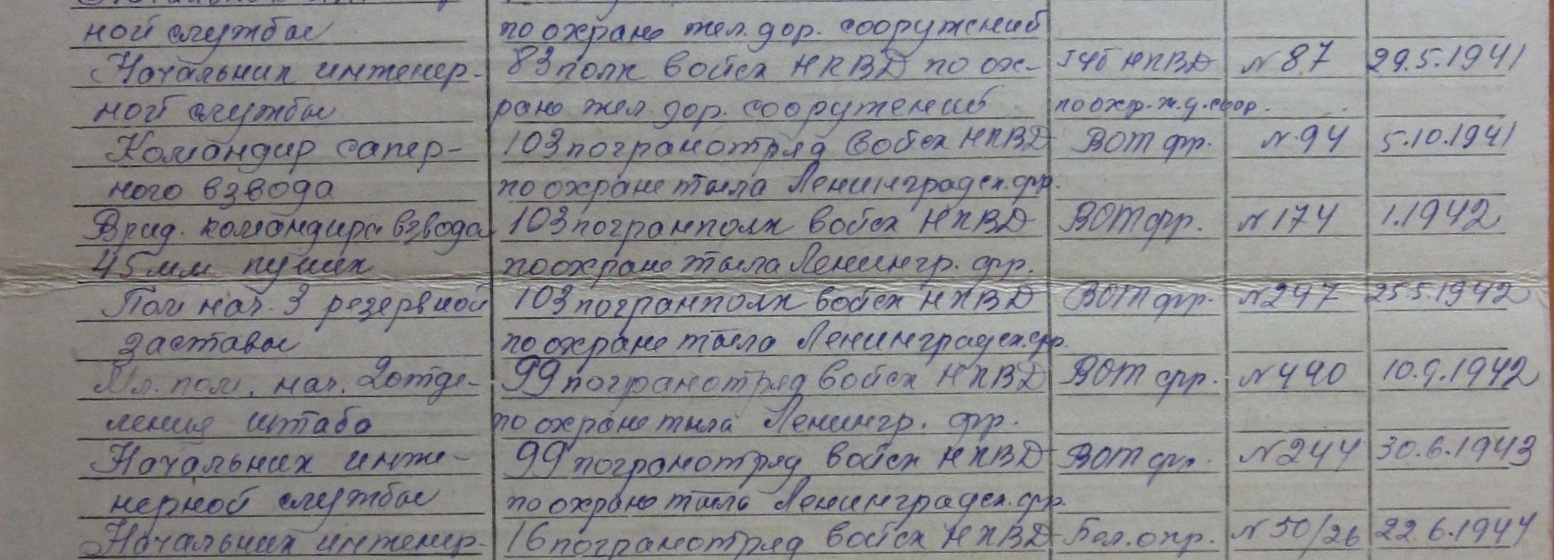 ной службы по охране жел. дор. сооружений
Начальник инженер- 83 полк войск НКВД по ох- НКВД №87 29.5.1941
ной службы ране жел. дор. сооружений по охр. ж.д. соор.
Командир сапер- 103 погранотряд войск НКВД ВОТ фр. №94 5.10.1941
ного взвода по охране тыла Ленинградск. фр.
Врид. командира взвода 103 погранполк войск НКВД ВОТ фр. №174 1.1942
45 мм пушек по охране тыла Ленингр. фр.
Пом нач. 3 резервной 103 погранполк войск НКВД ВОТ фр. №247 25.5.1942
заставы по охране тыла Ленинградск. фр.
Мл. пом. нач. 2 отде- 99 погранотряд войск НКВД ВОТ фр. №490 10.9.1942
ления штаба по охране тыла Ленингр. фр.
Начальник инже- 99 погранотряд войск НКВД ВОТ фр. №244 30.6.1943
нерной службы по охране тыла Ленинградск. фр.
Начальник инженер- 16 погранотряд войск НКВД Бел. окр. №50/26 22.6.1944